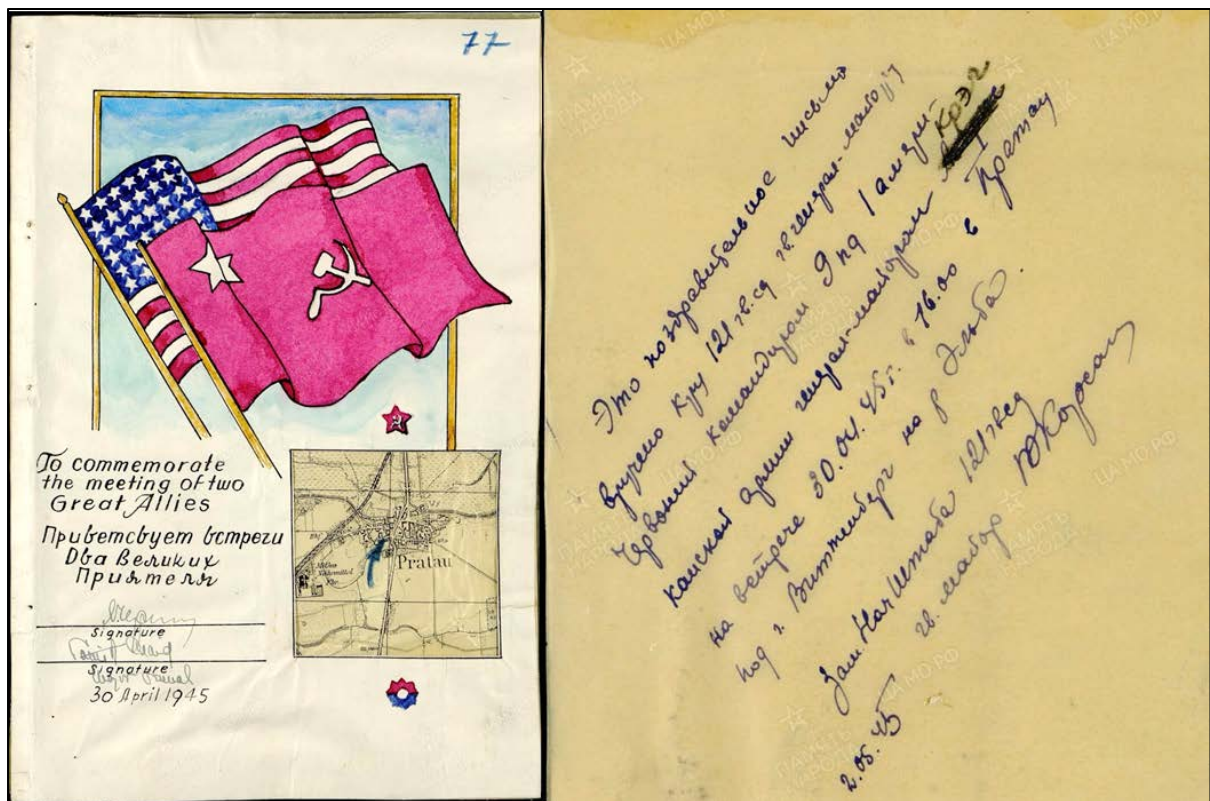 77
To commemorate
the meeting of two
Great Allies
Приветсвует встречи
Два Великих
Приятеля
Signature
Signature
30 April 1945
Pratau
Это поздравительное письмо
вручено кру 121 гв.сд гв. генерал-майору
Червоний командиром 9 пд 1 амери-
канской армии генерал-майором Крэг
на встрече 30.04.45 г. в 16.00 в Пратау
под г. Виттенберг на р Эльба.
Зам. НачШтаба 121 гвсд
гв. майор
2.05.45
ПАМЯТЬ НАРОДА
ЦАМО.РФ